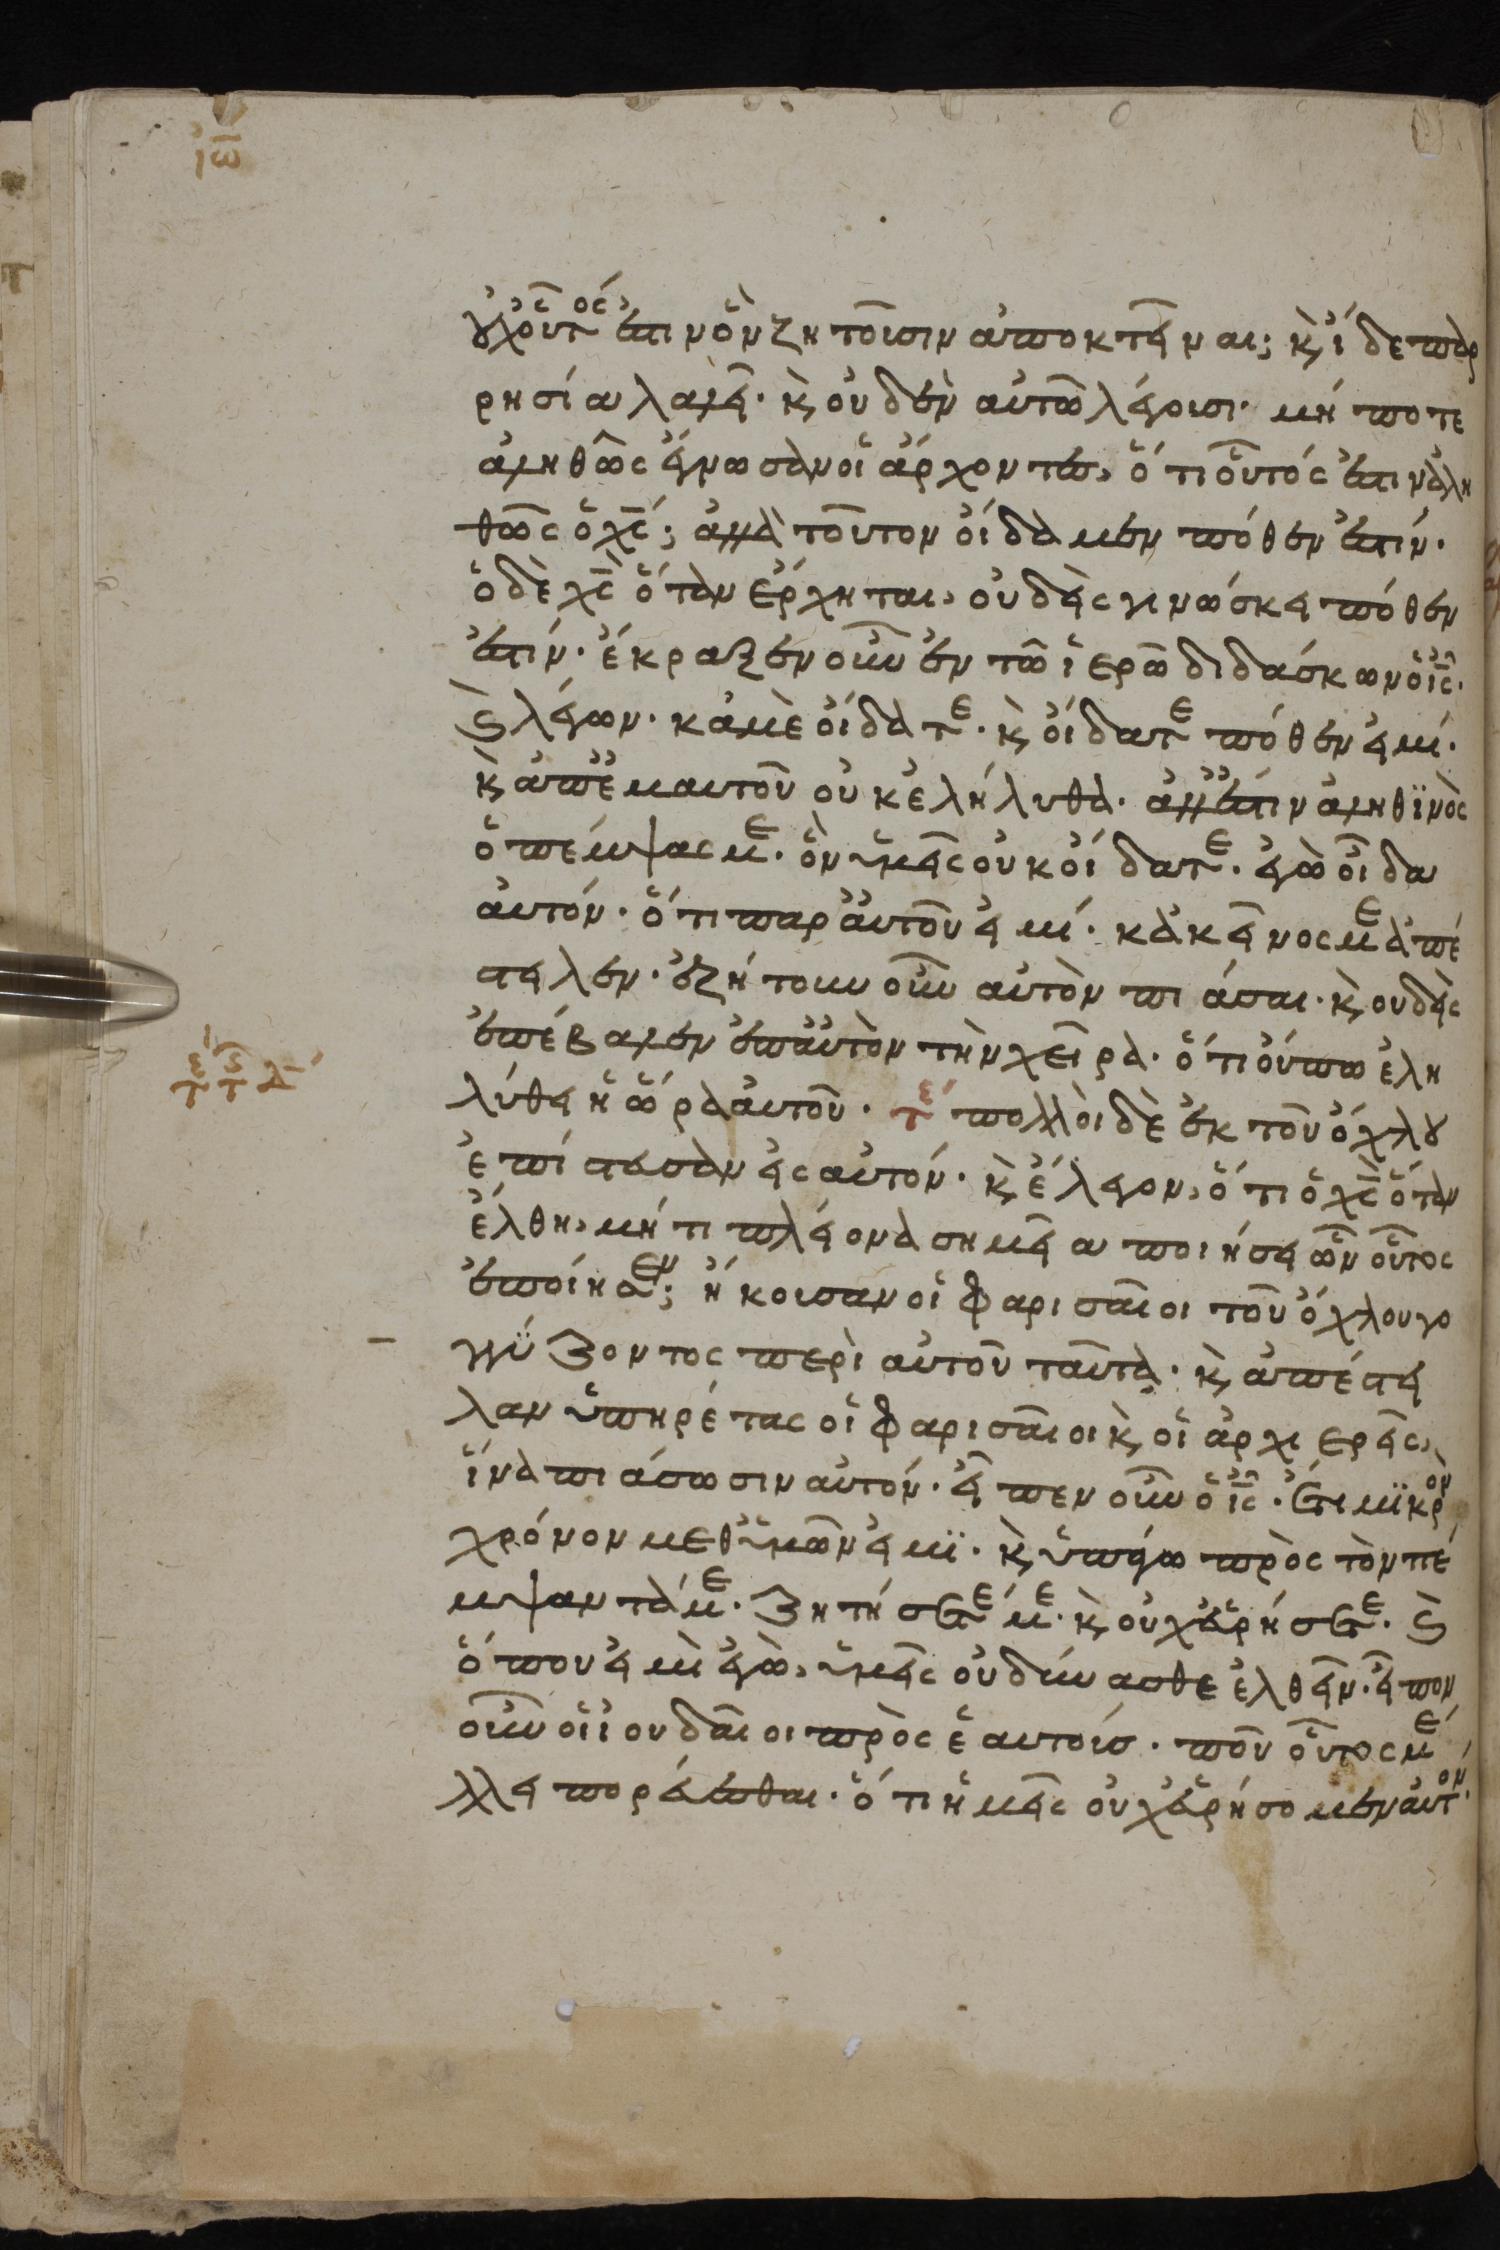 ἰω̅
οὐχ οὗτός ἐστιν ὃν ζητοῦσιν ἀποκτεῖναι; κ̀ ἴδε παρ
ρησία λαλεῖ· κ̀ οὐδὲν αὐτῶ λέγουσι· μή ποτε
ἀληθῶς ἔγνωσαν οἱ ἄρχοντες, ὅτι οὗτός ἐστιν ἀλη
θῶς ὁ χς̅; ἀλλὰ τοῦτον οἴδαμεν πόθεν ἐστίν·
ὁ δὲ χς̅ ὅταν ἔρχηται, οὐδεὶς γινώσκει πόθεν
ἐστίν· ἔκραξεν οὖν ἐν τῶ ἱερῶ διδάσκων ὁ ις̅·
κ̀ λέγων· κἀμὲ οἴδατε· κ̀ οἴδατε πόθεν εἰμί·
κ̀ ἀπ' ἐμαυτοῦ οὐκ ἐλήλυθα· ἀλλ' ἔστιν ἀληθϊνὸς
ὁ πέμψας με· ὃν ὑμεῖς οὐκ οἴδατε· ἐγὼ οἶδα
αὐτόν· ὅτι παρ' αὐτοῦ εἰμί· κἀκεῖνος με ἀπέ
στειλεν· ἐζήτουν οὖν αὐτὸν πιάσαι· κ̀ ουδεὶς
ἐπέβαλεν ἐπ' αὐτὸν τὴν χεῖρα· ὅτι οὔπω ἐλη
λύθει ἡ ὥρα αὐτοῦ· τέ πολλοὶ δὲ ἐκ τοῦ ὄχλου
ἐπίστευσαν εἰς αὐτόν· κ̀ ἔλεγον, ὅτι ὁ χς̅ ὅταν
ἔλθη, μήτι πλείονα σημεῖα ποιήσει ὧν οὗτος
ἐποίησεν; ἤκουσαν οἱ φαρισαῖοι τοῦ ὄχλου γο
γγύζοντος περὶ αὐτοῦ ταῦτα· κ̀ ἀπέστει
λαν ὑπηρέτας οἱ φαρισαῖοι κ̀ οἱ ἀρχιερεῖς,
ἵνα πιάσωσιν αὐτόν· εἶπεν οὖν ὁ ις̅· ἔτι μϊκρὸν
χρόνον μεθ' ὑμῶν εἰμϊ· κ̀ ὑπάγω πρὸς τὸν πέ
μψαντά με· ζητήσετέ με· κ̀ οὐχ εὑρήσετε· κ̀
ὅπου εἰμὶ ἐγὼ, ὑμεῖς οὐ δύνασθε ἐλθεῖν· εἶπον
οὖν οἱ ἰουδαῖοι πρὸς ἑαυτούς· ποῦ οὗτος μέ
λλει πορεύεσθαι· ὅτι ἡμεῖς οὐχ εὑρήσομεν αὐτόν·